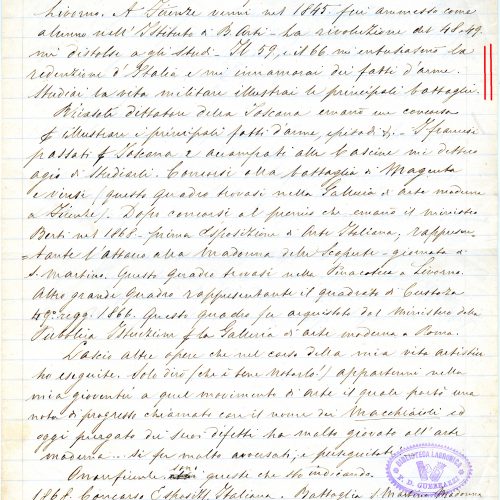 Livorno. A Firenze venni nel 1845 fui ammesso come
alunno nell'Istituto di B. Arti - la rivoluzione del 48-49.
mi distolse agli studi - Il 59, e il 66 mi entusiasmò la
redenzione d'Italia e mi innamorai dei fatti d'arme.
Studiai la vita militare illustrai le principali battaglie.
Ricasoli dittatore della Toscana emanò un concorso
illustrare i principali fatti d'arme episodi &. - I francesi
passati Toscana e acampati alle Cascine mi dettero
agio di studiarli. Concorsi alla battaglia di Magenta
e vinsi (questo quadro trovasi nella Galleria di arte moderna
a Firenze). Dopo concorsi al premio che emanò il ministro
Berti nel 1868 - prima Esposizione di Arte Italiana, rappresen=
=tante l'attacco alla Madonna della Scoperta - giornata di
S. Martino. Questo Quadro trovasi nella Pinacoteca a Livorno.
Altro grande quadro rappresentante il quadrato di Custoza
49º. regg. 1866. Questo quadro fu acquistato dal Ministero della
Pubblica Istruzione la Galleria di arte moderna a Roma.
Lascio altre opere che nel corso della mia vita artistica
ho eseguite. Solo dirò (che è bene notarlo!) appartenni nella
mia gioventù a quel movimento di arte il quale portò una
nota di progresso chiamati con il nome dei Macchiaioli ed
oggi purgato dei suoi difetti ha molto giovato all'arte
moderna... si fu molto avversati, e perseguitati.
Onorificenze queste che sto indicando.
1868. Concorso Italiana. Battaglia Madonna
BIBLIOTECA LABRONICA
F. D. GUERRAZZI